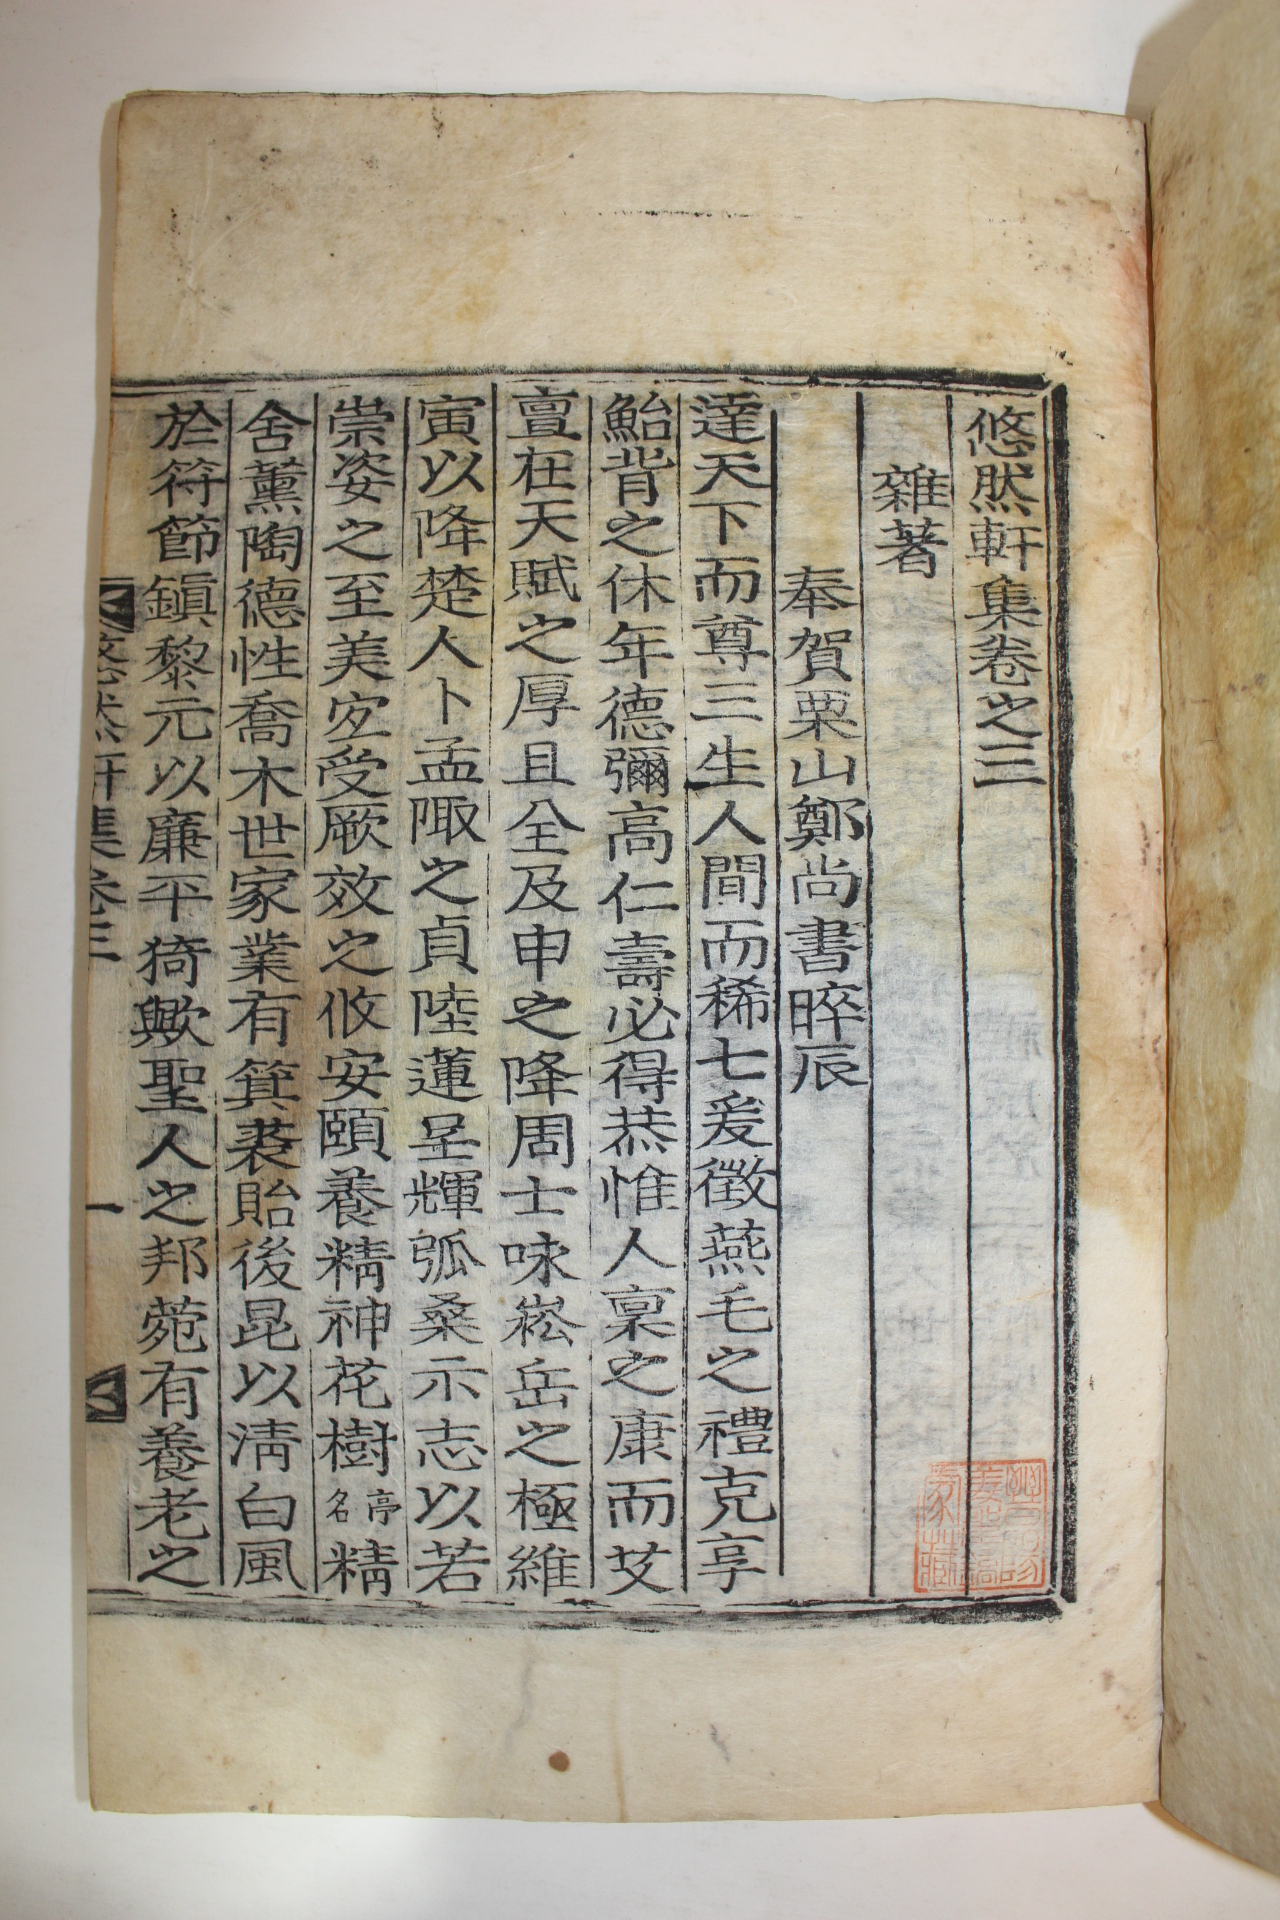 悠然軒集卷之三
雜著
奉賀栗山鄭尚書晬辰
達天下而尊三生人間而稀七爰徵燕毛之禮克享
鮐背之休年德彌高仁壽必得恭惟人禀之康而艾
亶在天賦之厚且全及申之降周士咏崧岳之極維
寅以降楚人卜孟陬之貞陸蓮呈輝弧桑示志以若
崇姿之至美宐受厥效之攸安頤養精神花樹亭名精
舍薰陶德性喬木世家業有箕裘貽後昆以淸白風
於符節鎭黎元以廉平猗歟聖人之邦菀有養老之
悠然軒集卷三
一